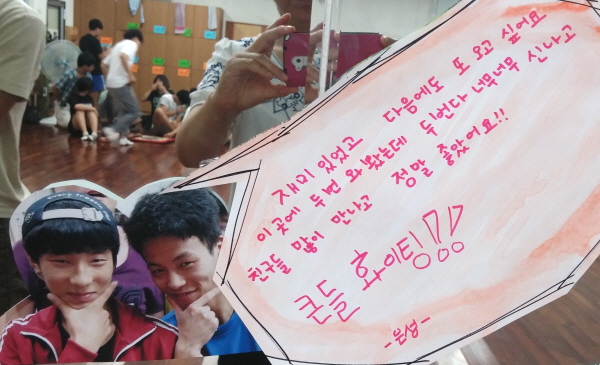 재미 있었고 다음에도 또 오고 싶어요
이곳에 두번 와 봤는데 두번다 너무너무 신나고
친구들 많이 만나고 정말 좋았어요!!
큰들 화이팅!!!
-은성-